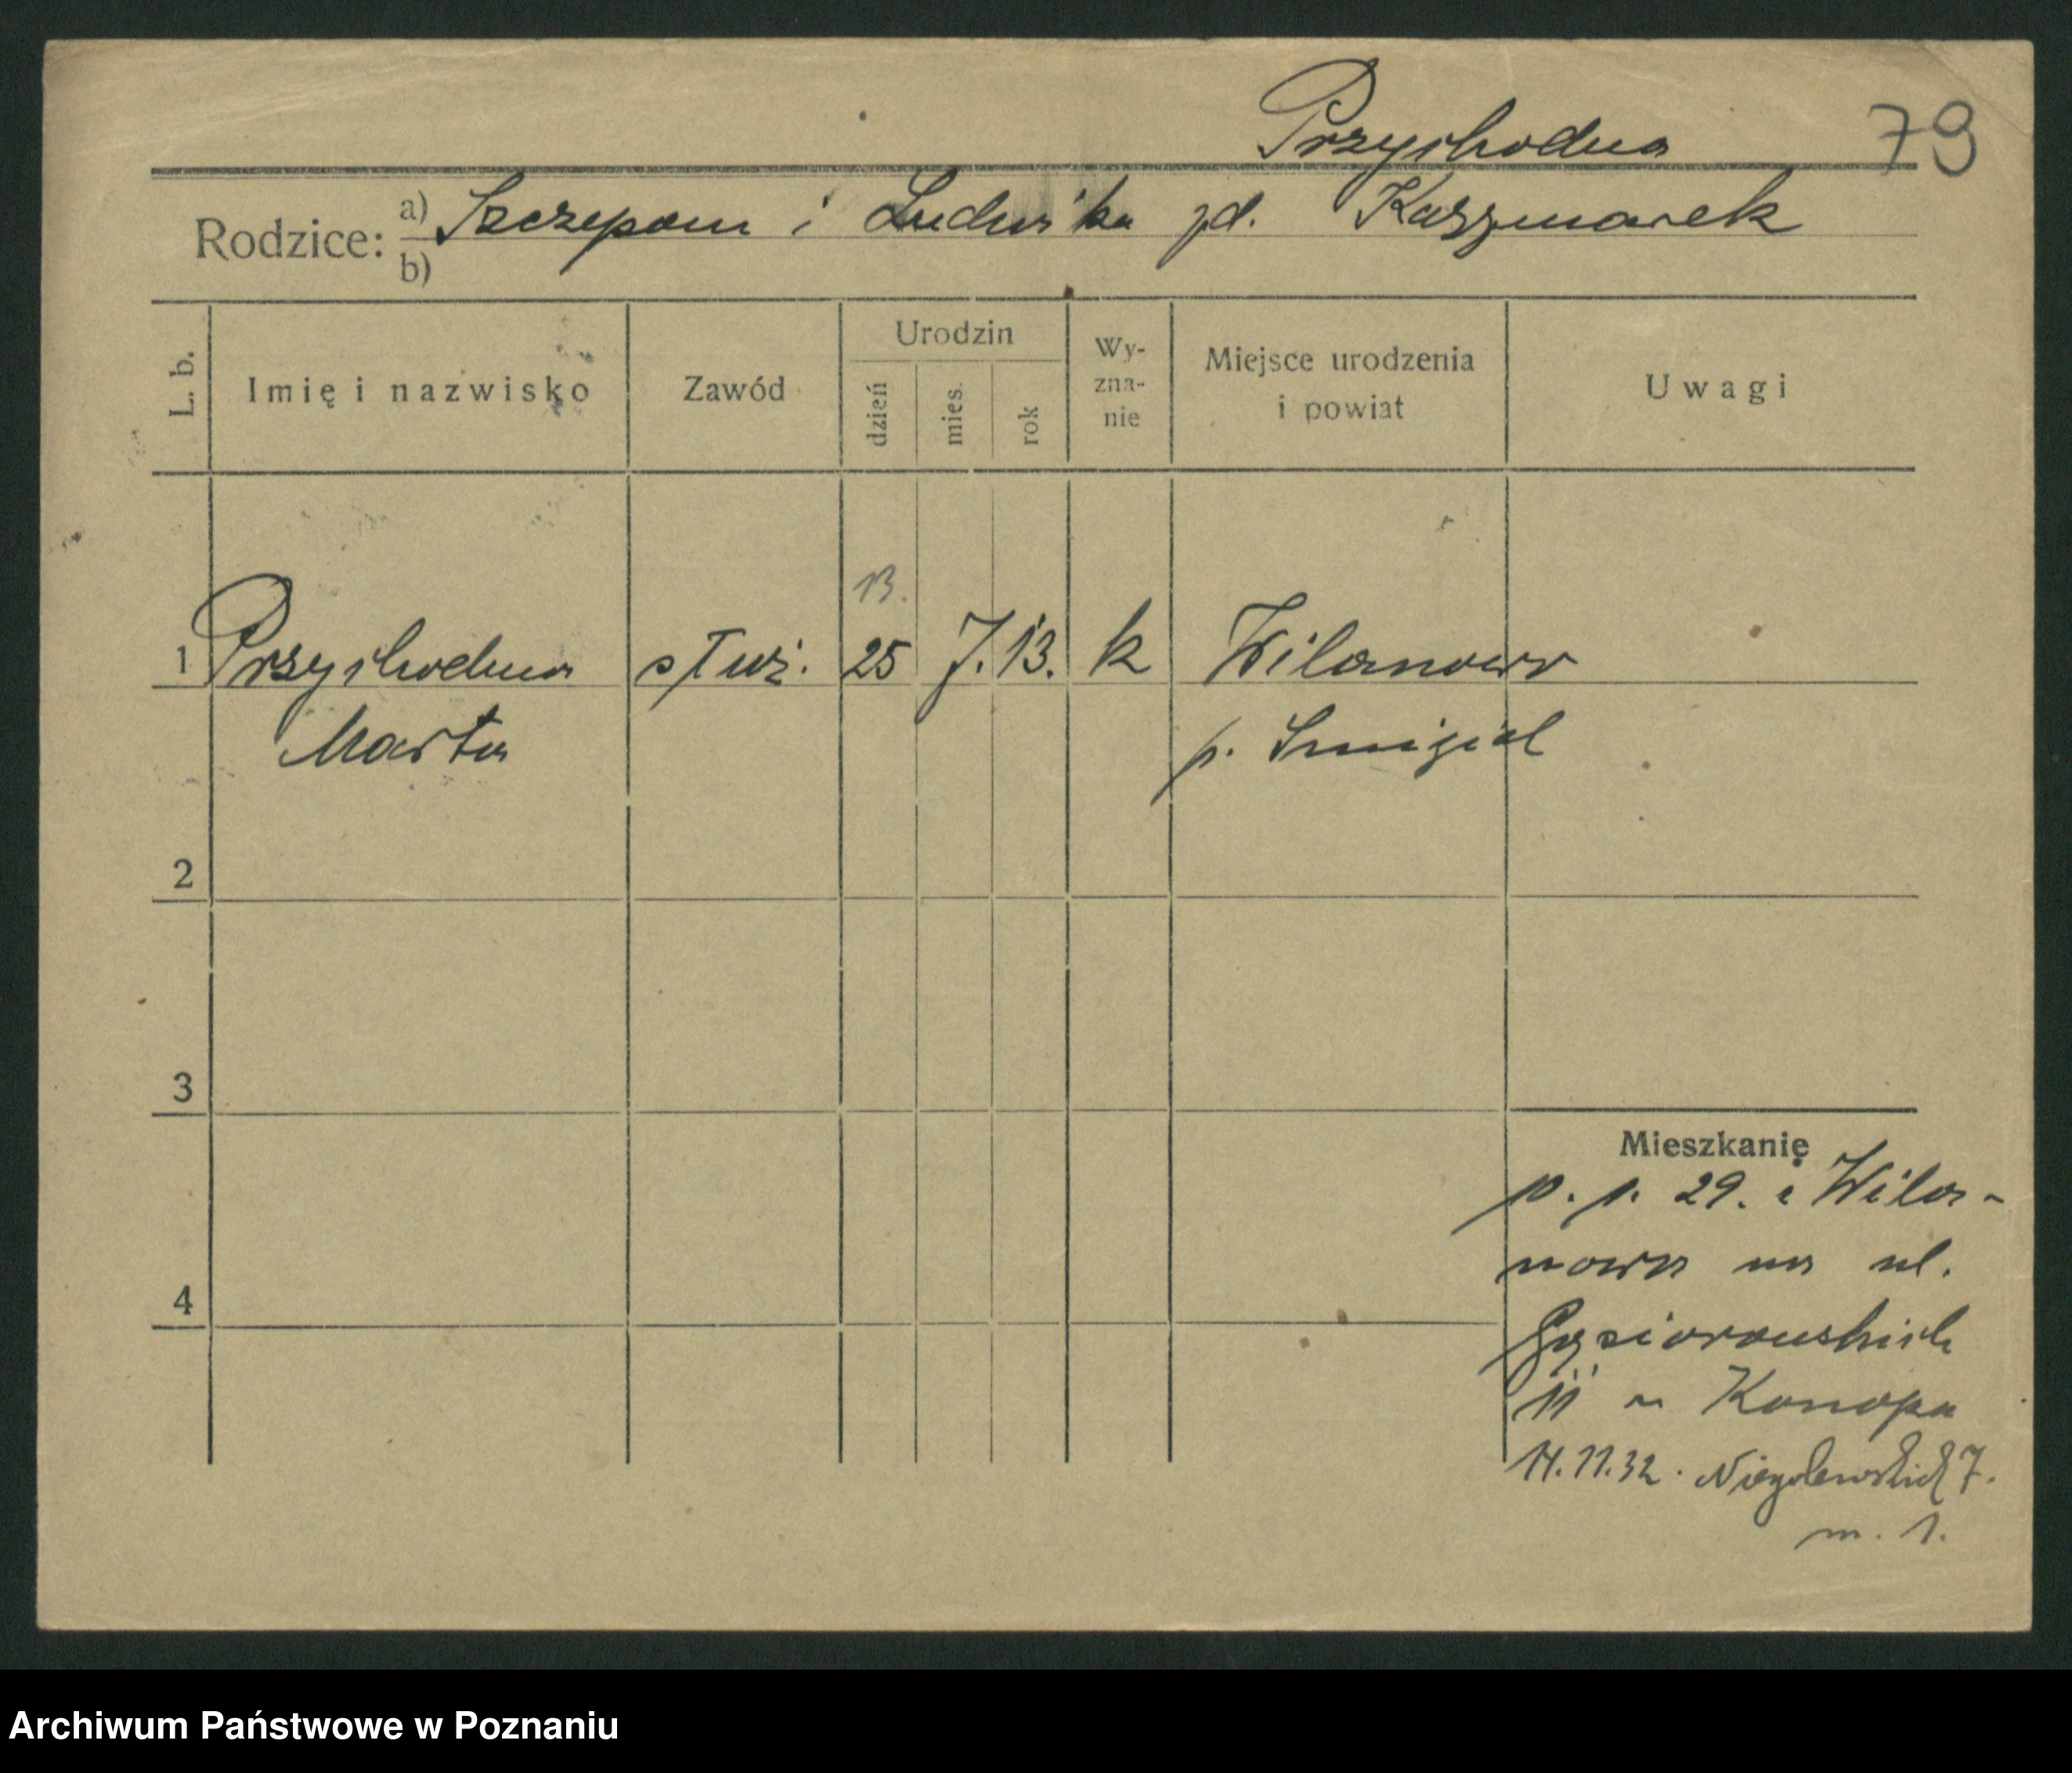 Przychodna 79
Rodzice: a) Szczepan i Ludwika zd. Kaszmarek
b)
L. b. Imię i nazwisko Zawód Urodzin dzień mies. rok Wy-zna-nie Miejsce urodzenia i powiat Uwagi
13.
1 Przychodna służ. 25 7. 13. k Wilanowo
Marta p. Śmigiel
2
3
Mieszkanie
p. p. 29. z Wila-
nowa na ul.
4
Gąsiorowskich
11 u Konopa
14.11.32. Niegolewskich 7.
m. 1.
Archiwum Państwowe w Poznaniu